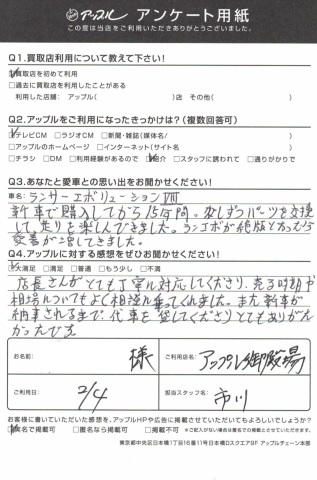 アップル アンケート用紙
この度は当店をご利用いただきありがとうございました。
Q1.買取店利用について教えて下さい!
☑買取店を初めて利用
□過去に買取店を利用したことがある
利用した店舗: アップル( )店 その他( )
Q2.アップルをご利用になったきっかけは?(複数回答可)
☑テレビCM □ラジオCM □新聞・雑誌(媒体名/ )
□アップルのホームページ □インターネット(サイト名 )
□チラシ □DM □利用経験があるので ☑紹介 □スタッフに誘われて □通りがかりで
Q3.あなたと愛車との思い出をお聞かせください!
車名: ランサーエボリューションVIII
新車で購入してから15年間。少しずつパーツを交換
して、走りを楽しんできました。ランエボが絶版となってから
愛着が増してきました。
Q4.アップルに対する感想をぜひお聞かせください!
☑大満足 □満足 □普通 □もう少し □不満
店長さんがとても丁寧に対応してくださり、売る時期や
相場についてもよく相談に乗ってくれました。また新車が
納車されるまで、代車を貸してくださりとてもありがた
かったです
お名前: 様
ご利用店名: アップル御殿場
ご利用日: 2/4
担当スタッフ名: 市川
お客様に書いていただいた感想を、アップルHPや広告に掲載させていただいてもよろしいでしょうか?
☑実名で掲載可 □匿名なら掲載可 □掲載不可 ※ご記入がない場合は匿名での掲載とさせていただきます。
東京都中央区日本橋1丁目16番11号日本橋Dスクエア9F アップルチェーン本部